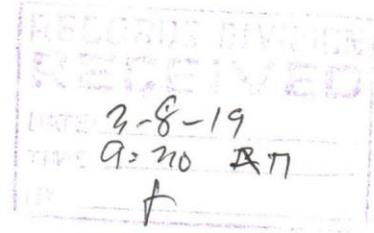 RECORDS DIVISION
RECEIVED
DATE 3-8-19
TIME
BY